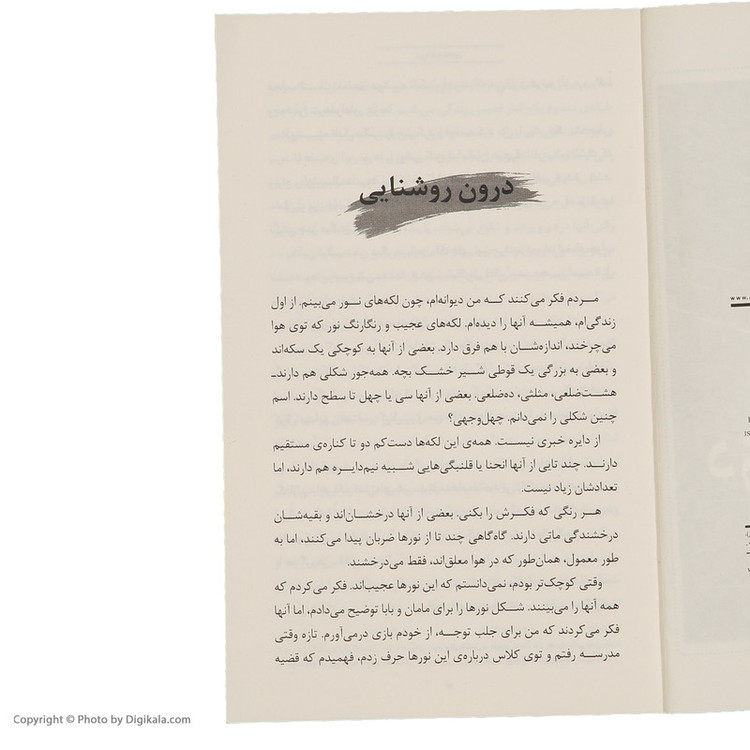 درون روشنایی
مردم فکر می‌کنند که من دیوانه‌ام، چون لکه‌های نور می‌بینم. از اول
زندگی‌ام، همیشه آنها را دیده‌ام. لکه‌های عجیب و رنگارنگ نور که توی هوا
می‌چرخند، اندازه‌شان با هم فرق دارد. بعضی از آنها به کوچکی یک سکه‌اند
و بعضی به بزرگی یک قوطی شیر خشک بچه. همه‌جور شکلی هم دارند-
هشت‌ضلعی، مثلثی، ده‌ضلعی. بعضی از آنها سی یا چهل تا سطح دارند. اسم
چنین شکلی را نمی‌دانم. چهل‌وجهی؟
از دایره خبری نیست. همه‌ی این لکه‌ها دست‌کم دو تا کناره‌ی مستقیم
دارند. چند تایی از آنها انحنا یا قلنبگی‌هایی شبیه نیم‌دایره هم دارند، اما
تعدادشان زیاد نیست.
هر رنگی که فکرش را بکنی. بعضی از آنها درخشان‌اند و بقیه‌شان
درخشندگی ماتی دارند. گاه‌گاهی چند تا از نورها ضربان پیدا می‌کنند، اما به
طور معمول، همان‌طور که در هوا معلق‌اند، فقط می‌درخشند.
وقتی کوچک‌تر بودم، نمی‌دانستم که این نورها عجیب‌اند. فکر می‌کردم که
همه آنها را می‌بینند. شکل نورها را برای مامان و بابا توضیح می‌دادم، اما آنها
فکر می‌کردند که من برای جلب توجه، از خودم بازی درمی‌آورم. تازه وقتی
مدرسه رفتم و توی کلاس درباره‌ی این نورها حرف زدم، فهمیدم که قضیه
Copyright © Photo by Digikala.com